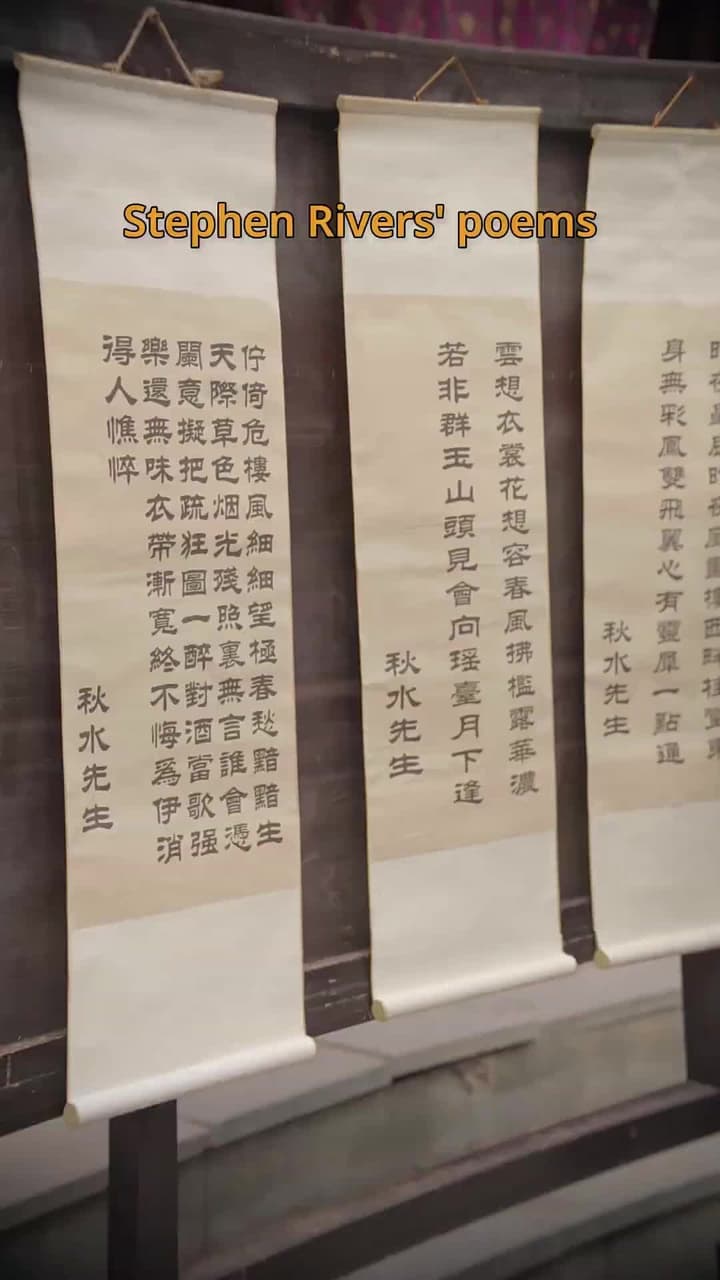 Stephen Rivers' poems
佇倚危樓風細細望極春愁黯黯生
天際草色烟光殘照裏無言誰會憑
闌意擬把疏狂圖一醉對酒當歌强
樂還無味衣帶漸寬終不悔爲伊消
得人憔悴
秋水先生
雲想衣裳花想容春風拂檻露華濃
若非群玉山頭見會向瑶臺月下逢
秋水先生
身無彩鳳雙飛翼心有靈犀一點通
秋水先生